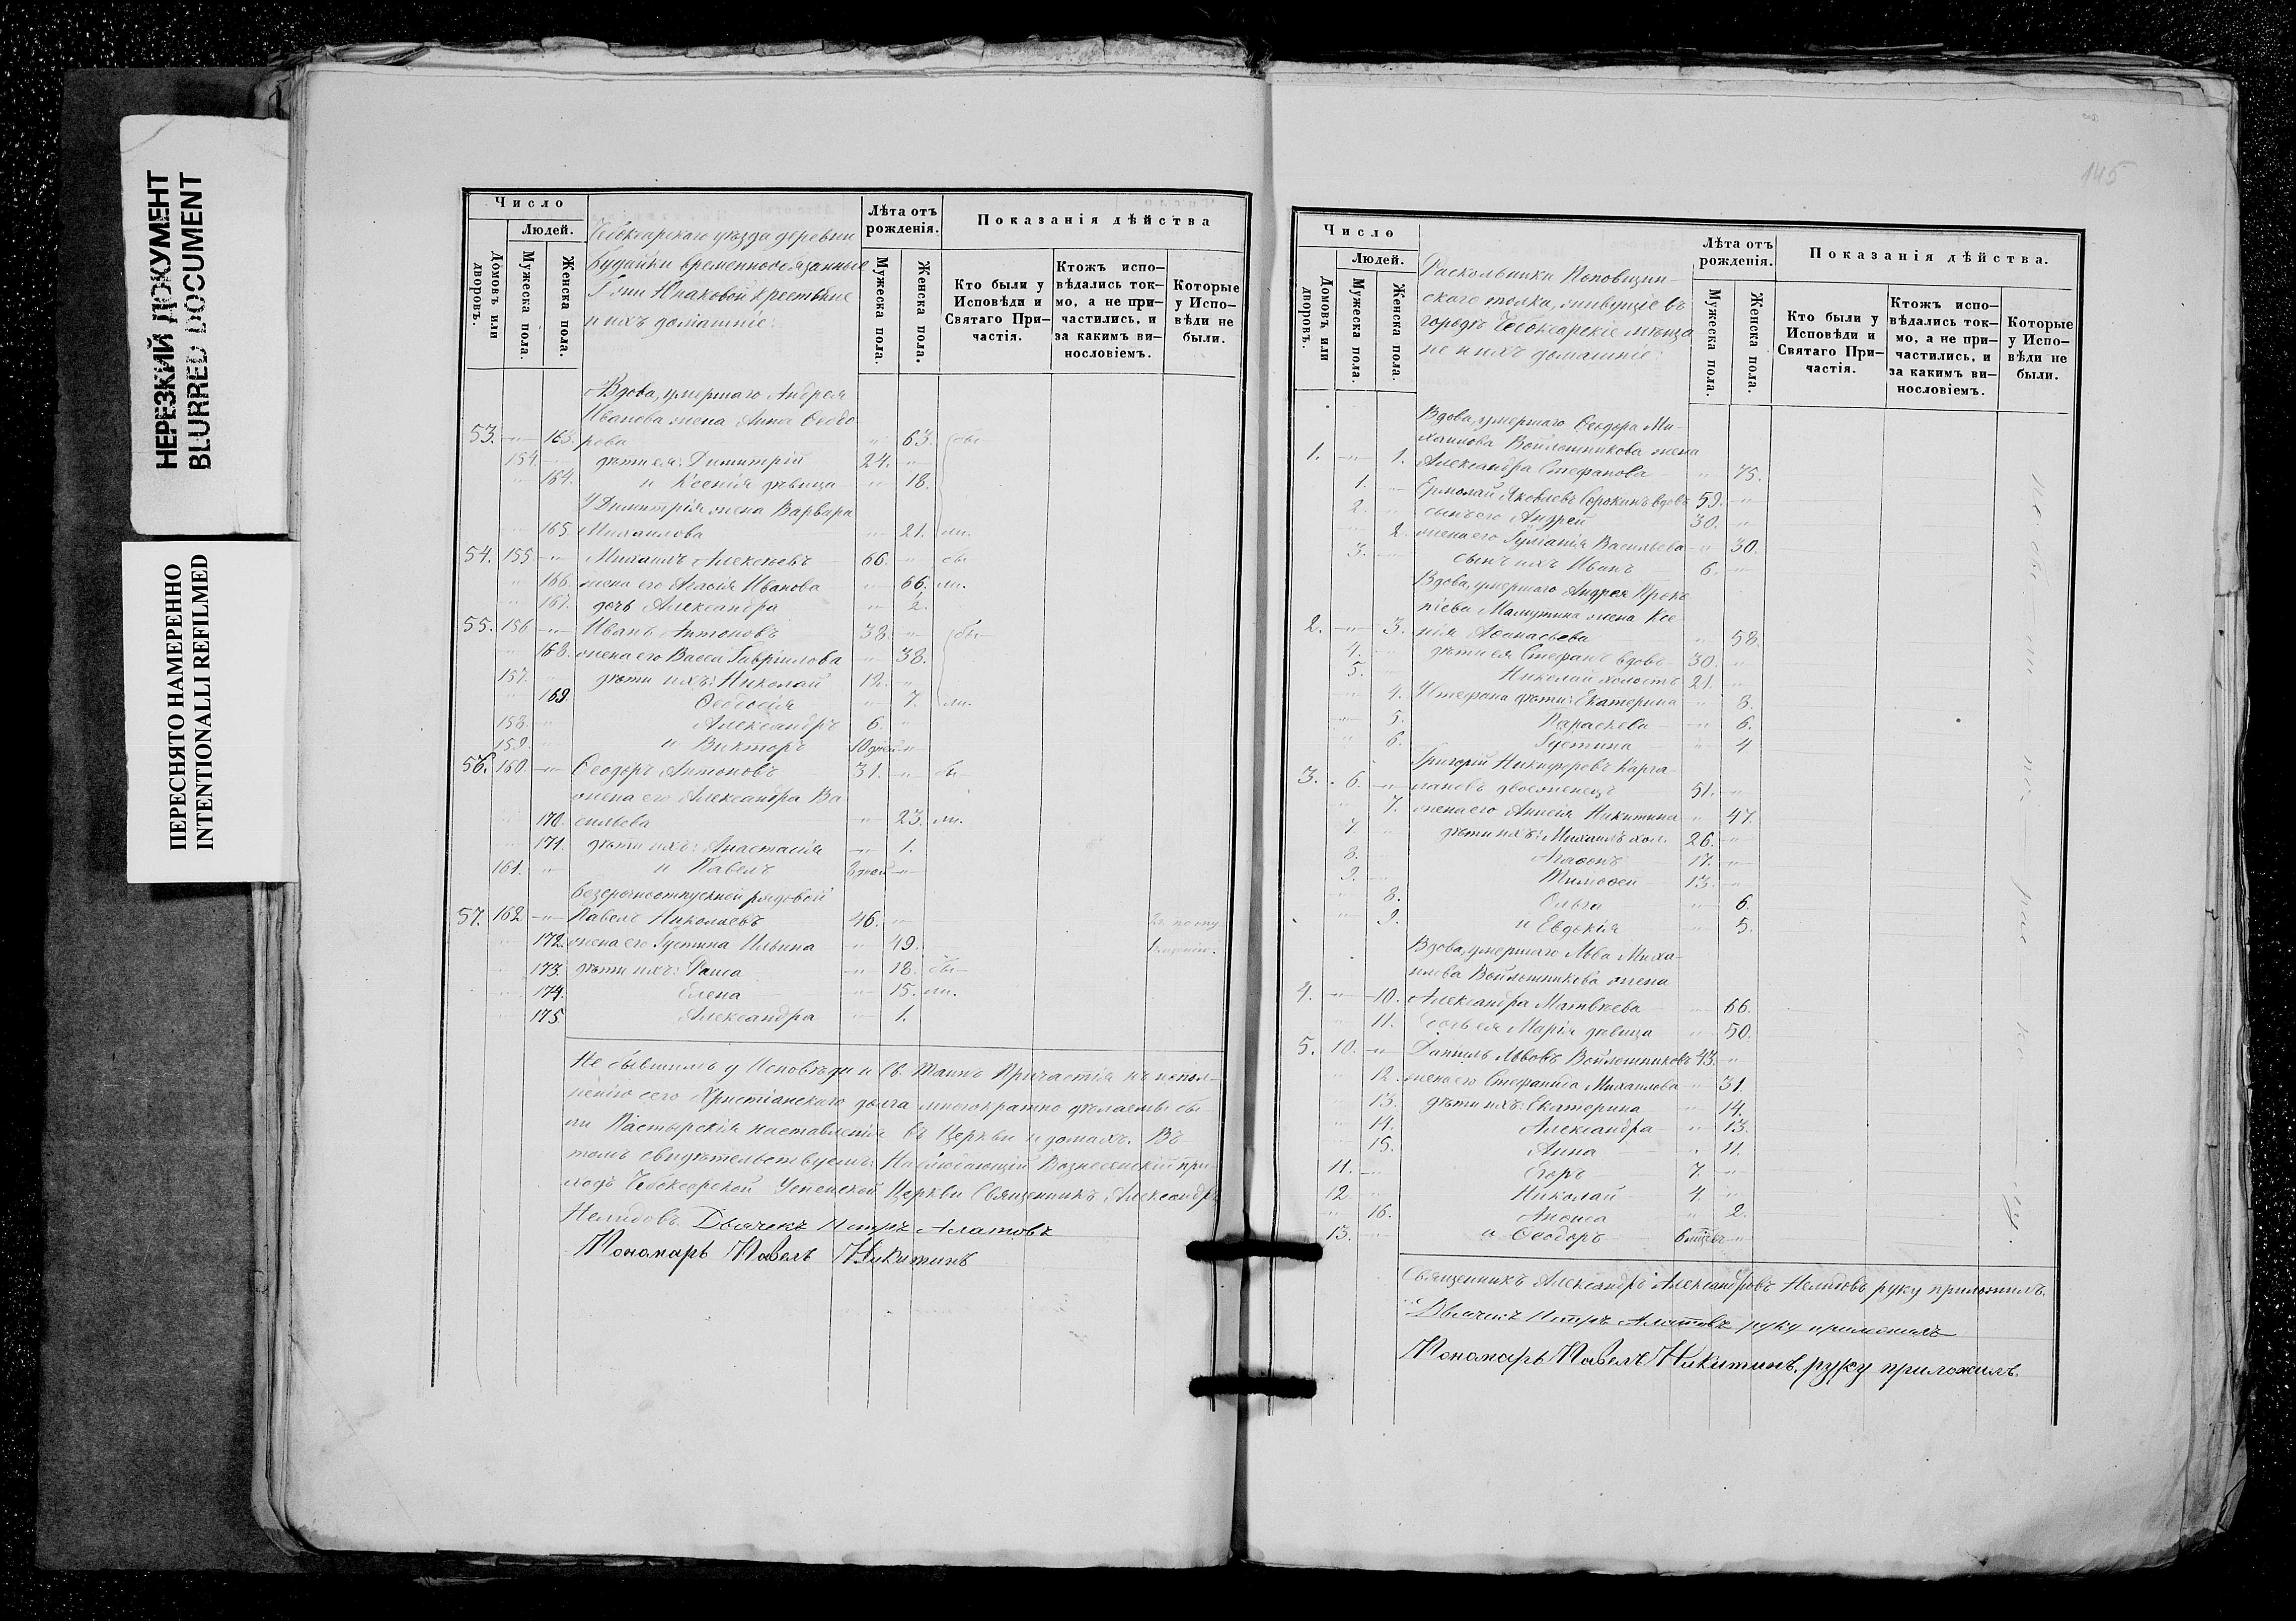 НЕРЕЗКИЙ ДОКУМЕНТ
BLURRED DOCUMENT
ПЕРЕСНЯТО НАМЕРЕННО
INTENTIONALLI REFILMED
Число
Домовъ или дворовъ.
Людей.
Мужеска пола.
Женска пола.
Чебоксарскаго уѣзда деревни
Будайки временнообязанные
Г-жи Юнаковой крестьяне
и ихъ домашніе:
Лѣта отъ рожденія.
Мужеска пола.
Женска пола.
Показанія дѣйства
Кто были у Исповѣди и Святаго При-частія.
Ктожъ испо-вѣдались ток-мо, а не при-частились, и за какимъ ви-нословіемъ.
Которые у Испо-вѣди не были.
Вдова, умершаго Андрея
Иванова жена Анна Ѳеодо
53. —"— 163. рова " 63. бы-
154. дѣти ея: Димитрій 24. "
" 164. и Ксенія дѣвица " 18.
У Димитрія жена Варвара
165. Михаилова " 21. ли.
54. 155 —"— Михаилъ Алексѣевъ 66. " бы
" 166. жена его Агаѳія Иванова 66. ли.
" 167. дочь Александра " 2.
55. 156 —"— Иванъ Антоновъ 38. " бы-
" 168. жена его Васса Гавріилова " 38.
157. " дѣти ихъ: Николай 12. "
" 169. Ѳеодосія " 7. ли.
158. " Александръ 6. "
159. " и Викторъ 10 дней "
56. 160 —"— Ѳеодоръ Антоновъ 31. " бы-
жена его Александра Ва
170. сильева " 23. ли.
171. дѣти ихъ: Анастасія " 1.
161. " и Павелъ 8 дней "
Безсрочноотпускной рядовой
57. 162 —"— Павелъ Николаевъ 46. "
" 172. жена его Іустина Ильина " 49.
173. дѣти ихъ: Раиса " 18. бы-
174. Елена " 15. ли.
175 Александра " 1.
Не бывшимъ у Исповѣди и Св. Таинъ Причастія къ испол-
ненію сего Христіанскаго долга многократно дѣлаемы бы
ли Пастырскія наставленія въ Церкви и домахъ. Въ
томъ свидѣтельствуемъ: Наблюдающій Вознесенскій при-
ходъ Чебоксарской Успенской Церкви Священникъ Александръ
Нелидовъ. Дьячекъ Петръ Алатовъ
Пономарь Павелъ Никитинъ
145
Число
Домовъ или дворовъ.
Людей.
Мужеска пола.
Женска пола.
Раскольники Поповщин-
скаго толка, живущіе въ
городѣ Чебоксарскіе мѣща
не и ихъ домашніе:
Лѣта отъ рожденія.
Мужеска пола.
Женска пола.
Показанія дѣйства.
Кто были у Исповѣди и Святаго При-частія.
Ктожъ испо-вѣдались ток-мо, а не при-частились, и за какимъ ви-нословіемъ.
Которые у Испо-вѣди не были.
Вдова, умершаго Ѳеодора Ми-
хаилова Войлошникова жена
1. —"— 1. Александра Стефанова " 75.
1. Ермолай Яковлевъ Сорокинъ вдовъ 59. "
2. сынъ его Андрей 30. "
2. жена его Васильева " 30.
3. сынъ ихъ Иванъ 6. "
Вдова, умершаго Андрея Проко
піева Мамутина жена Ксе
2. —"— 3. нія Аѳанасьева " 58.
4. дѣти ея Стефанъ вдовъ 30. "
5. Николай холостъ 21. "
" 4. У Стефана дѣти: Екатерина " 8.
" 5. Параскева " 6.
" 6. Іустина " 4
Григорій Никифоровъ Карга
3. 6. " двоеженецъ 51. "
7. жена его Анисія Никитина " 47.
7 " дѣти ихъ: Михаилъ хол. 26. "
8. Агаѳонъ 17. "
9. Тимоѳей 13. "
" 8. Ольга " 6.
" 9. и Евдокія " 5.
Вдова, умершаго Льва Миха-
илова Войлошникова жена
4. —"— 10. Александра Матвѣева " 66.
" 11. Дочь ея Марія дѣвица " 50.
5. 10. —"— Даніилъ Львовъ Войлошниковъ 43. "
" 12. жена его Стефанида Михаилова " 31.
" 13. дѣти ихъ: Екатерина " 14.
" 14. Александра " 13.
" 15. Анна " 11.
11. " Егоръ 7. "
12. " Николай 4. "
" 16. Анѳиса " 2.
13. " и Ѳеодоръ 6 мѣсяц. "
не бы ли по рас ко лу.
Священникъ Александръ Александровъ Нелидовъ руку приложилъ.
Дьячекъ Петръ Алатовъ руку приложилъ
Пономарь Павелъ Никитинъ, руку приложилъ.